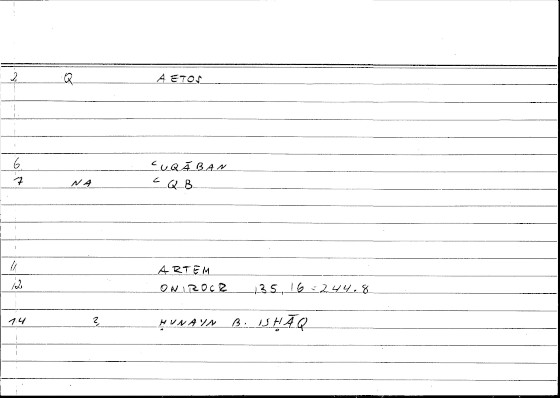 2 Q AETOS
6 ʿUQĀBAN
7 NA ʿQB
11 ARTEM
12 ONIROCR 135,16=244.8
14 2 ḤUNAYN B. ISḤĀQ